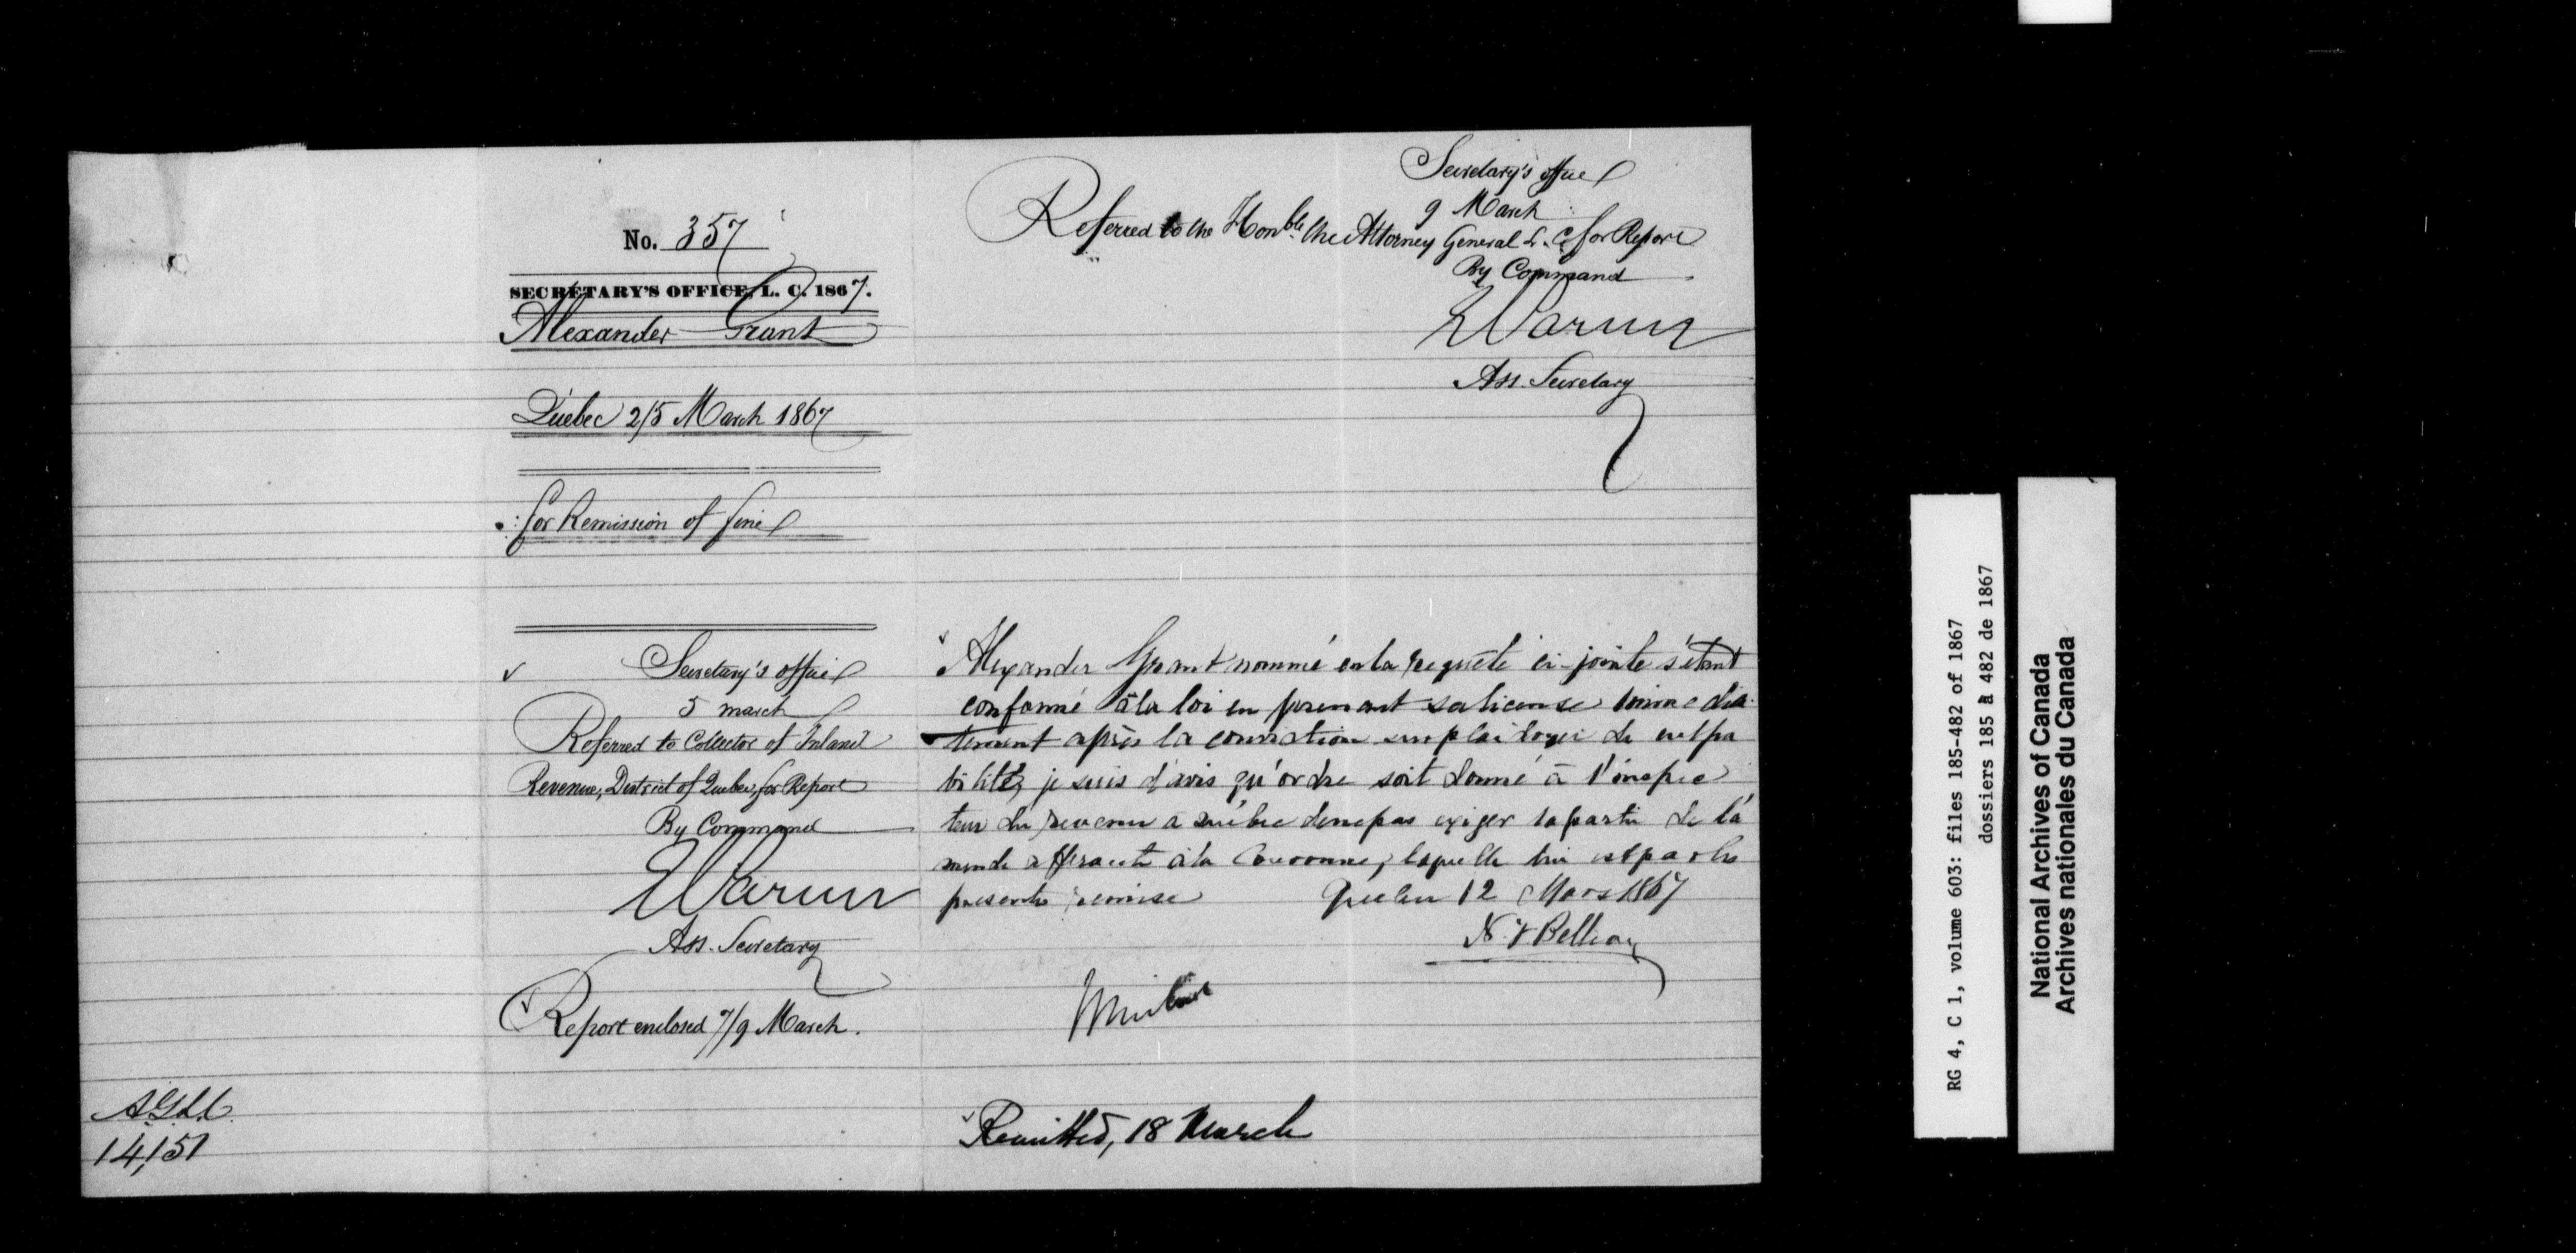 No. 357
SECRETARY'S OFFICE, L. C. 1867.
Alexander Grant
Quebec 2/5 March 1867
for Remission of fine
Secretary's office
5 march
Referred to Collector of Inland
Revenue, District of Quebec, for Report
By Command
Ass. Secretary
Report enclosed 7/9 March.
A.G.L.C.
14,151
Secretary's office
9 March
Referred to the Honble. the Attorney General L. C. for Report
By Command
Ass. Secretary
Alexander Grant nommé en la requête ci-jointe s'étant
conformé à la loi en prenant sa license immedia
tement après la conviction sur plaidoyer de culpa
bilité, je suis d'avis qu'ordre soit donné à l'inspec
teur du revenu a Québec de ne pas exiger la partie de l'a
mende afferante à la Couronne, laquelle lui est par les
presentes remise Quebec 12 Mars 1867
N. F. Belleau
Remitted, 18 March
RG 4, C 1, volume 603: files 185-482 of 1867
dossiers 185 à 482 de 1867
National Archives of Canada
Archives nationales du Canada